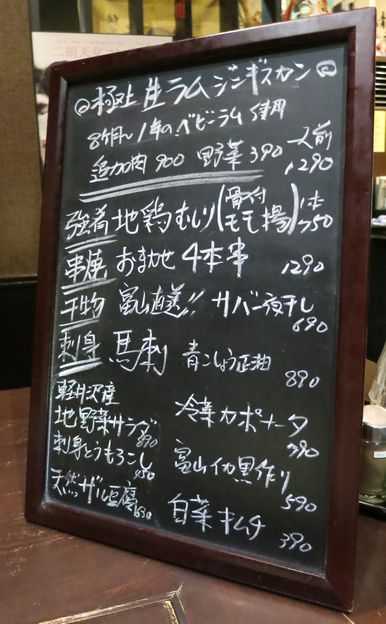 極上 生ラム ジンギスカン
8ケ月〜1年のベビーラム使用
一人前
追加肉 900 野菜 390 1290
強肴 地鶏むしり(骨付モモ揚) 1本 750
串焼 おまかせ 4本串 1290
干物 富山直送!! サバ一夜干し
690
刺身 馬刺 青こしょう正油
890
軽井沢産
地野菜サラダ 890
刺身とうもろこし 450
天然ザル豆腐 630
冷菜カポナータ
390
富山イカ黒作り
590
白菜キムチ
390